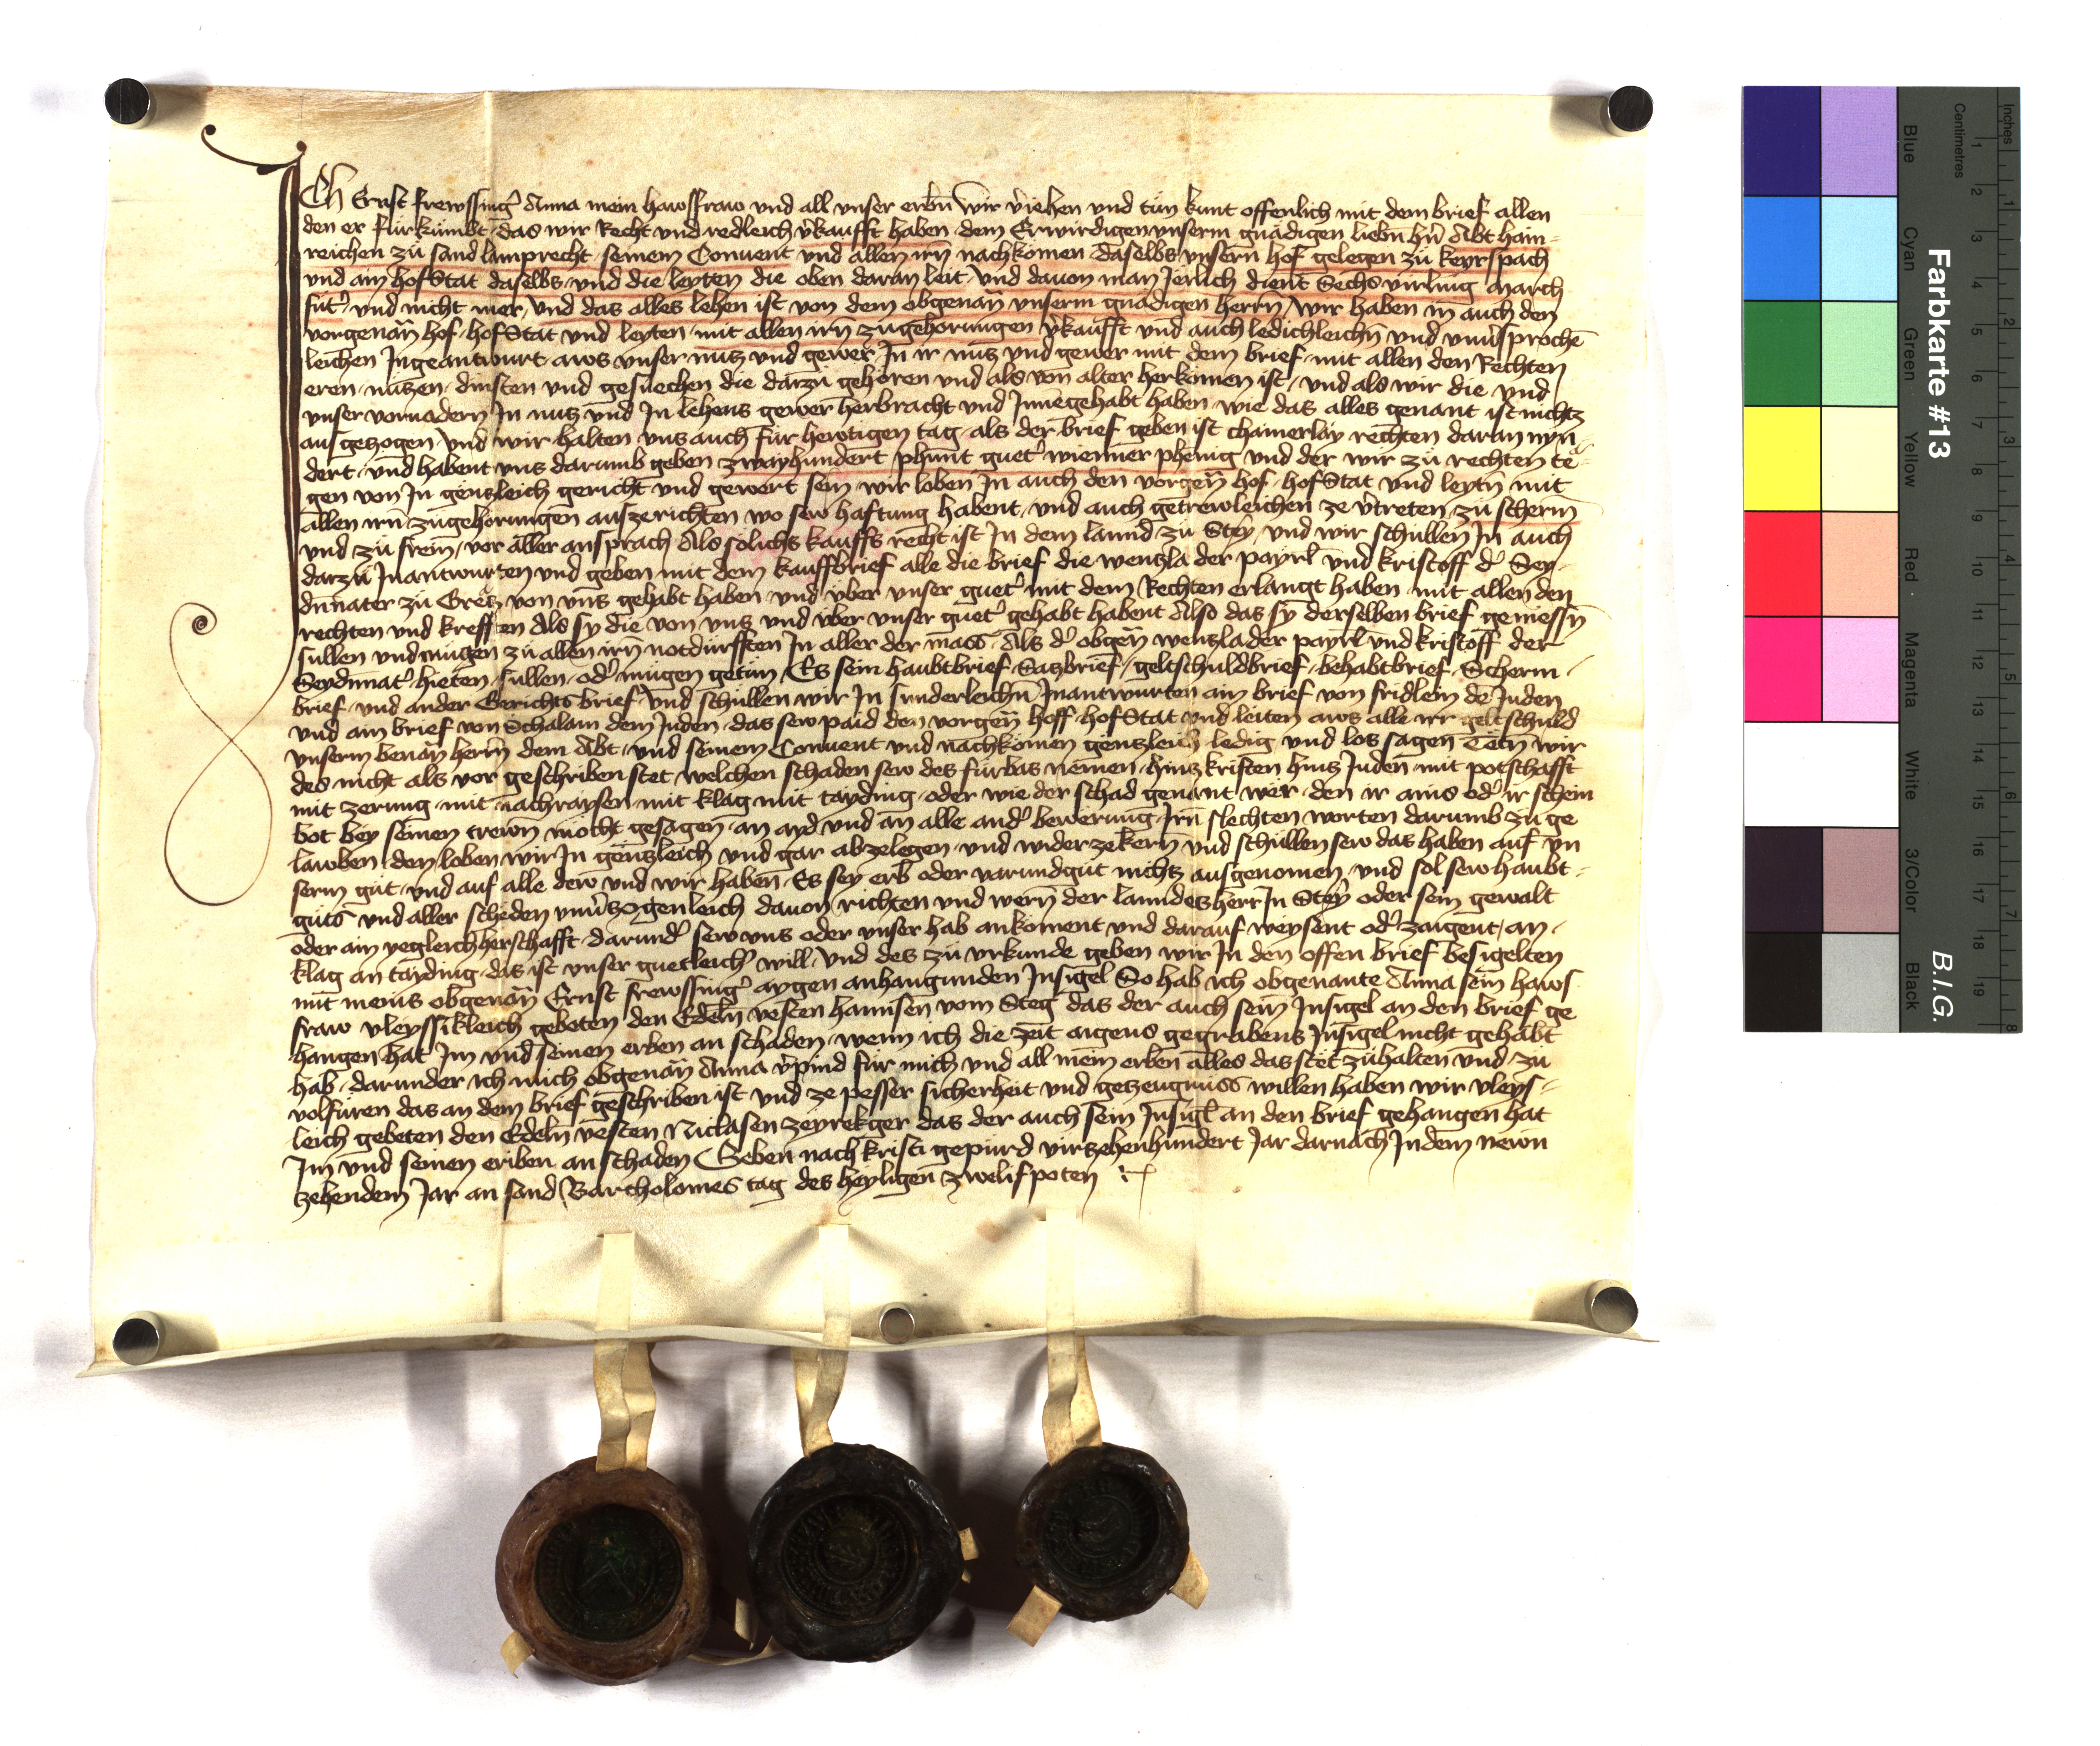 ICh Ernst frewssing' Anna mein hawsfraw vnd all vnser erbn̄ wir v'iehen vnd tün kunt offenlich mit dem brief allen
den er fürkümbt das wir Recht vnd redleich v'kaufft haben dem Erwirdigen vnserm gnädigen liebn̄ hn̄ Abt hain-
reichen zü sand lamprecht seinem Conuent vnd allen irn̄ nachkomen daselbs vnsern̄ hof gelegen zü keyrspach
vnd ain hofstat daselbs vnd die leyten die oben daran leit vnd dauon man Jërlich dient Sechs virling march
füt' vnd nicht mer, vnd das alles lehen ist von dem obgenan̄ vnserm gnädigen herrn, wir haben in auch den
vorgenan̄ hof hofstat vnd leyten mit allen irn̄ zugehorungen v'kaufft vnd auch ledichleichn̄ vnd vnu'sprochē
leichen Ingeantwurt aws vnser nutz vnd gewer, In ir nutz vnd gewer mit dem brief mit allen den Rechten
eren nutzen dinsten vnd gesuechen die darzü gehoren vnd als von alter herkömen ist, vnd als wir die vnd
vnser voruadern In nutz vnd In lehens gewer herbracht vnd Innegehabt haben wie das alles genant ist nichtz
ausgezogen vnd wir halten vns auch für hewtigen tag als der brief geben ist chainerlay rechten daran nyn-
dert vnd habent vns darumb geben zwayhundert phunt guet' wienner phenig vnd der wir zü rechten të-
gen von In gëntzleich gericht vnd gewert sein wir loben In auch den vorgen̄ hof hofstat vnd leytn̄ mit
allen irn̄ zugehorungen auszerichten wo sew haftung habent, vnd auch getrewleichen ze v'treten zü scherm̄
vnd zü frein, vor aller ansprach Als solichs kauffs recht ist In dem lannd zü Stey', vnd wir schullen In auch
darzü Inantwurten vnd geben mit dem kauffbrief alle die brief die wentzla der payrl̄ vnd kristoff d' Sey-
dnnater zü Gretz von vns gehabt haben vnd vber vnser guet' mit dem Rechten erlangt haben mit allen den
rechten vnd krefften Als sy die von vns vnd vber vnser guet' gehabt habent Also das sy derselben brief geniessn̄
sullen vnd mügen zü allen irn̄ notdürfften In aller der mass Als d' obgen̄ wentzla der payrl̄ vnd kristoff der
Seydnnat' hieten sullen od' mügen getün, Es sein haubtbrief Satzbrief geltschuldbrief behabtbrief Scherm-
brief vnd ander Gerichts brief vnd schullen wir In sunderleichn̄ Inantwurten ain brief von fridlein dē Juden
vnd ain brief von Schalam dem Juden das sew paid den vorgen̄ hoff hofstat vnd leiten aws alle irr geltschuld
vnserm benan̄ herrn dem Abt vnd seinem Conuent vnd nachkomen gëntzleich ledig vnd los sagen Tëtn̄ wir
des nicht als vor geschriben stet welchen schaden sew des fürbas nëmen hintz kristen hintz Juden mit potschafft
mit zerung mit nachraysen mit klag mit tayding oder wie der schad genant wër den ir ains od' ir schein
bot bey seinen trewn̄ möcht gesagen an ayd vnd an alle and' bewërung Irn̄ slechten worten darumb zu ge
lawben den loben wir In gëntzleich vnd gar abzelegen vnd widerzekern̄ vnd schüllen sew das haben auf vn
serm güt vnd auf alle dew vnd wir haben Es sey erb oder varundgüt nichtz ausgenomen, vnd sol sew haubt-
güts vnd aller schëden vnu'tzogenleich dauon richten vnd wern̄ der lanndesherr In Stey' oder sein gewalt
oder ain yegleich herschafft darund' sew vns oder vnser hab ankoment vnd darauf weysent od' zaigent, an
klag an tayding das ist vnser guetleich' will. Vnd des zü vrkunde geben wir In den offen brief besigelten
mit meins obgenan̄ Ernst frewssing' aygen anhangunden Insigel So hab ich obgenante Anna sein haws-
fraw vleyssikleich gebeten den Edeln̄ vesten hannsen vom Steg das der auch sein Insigel an den brief ge
hangen hat Im vnd seinen erben an schaden wenn ich die zeit aigens gegrabens Insigel nicht gehabt
hab darunder ich mich obgenan̄ Anna v'pind für mich vnd all mein erben alles das stet zühalten vnd zü
volfüren das an dem brief geschriben ist vnd ze pesser sicherheit vnd getzeugnüss willen haben wir vleys-
leich gebeten den Edeln̄ vesten Niclasen zeyrekger das der auch sein Insigl̄ an den brief gehangen hat
Im vnd seinen eriben an schaden Geben nach kristi gepürd virtzehenhundert Jar darnach In dem newn
tzehendem Jar an sand Bartholomes tag des heyligen zwelifpoten
Farbkarte #13
B.I.G.
Centimetres
Inches
Blue
Cyan
Green
Yellow
Red
Magenta
White
3/Color
Black